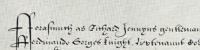 Forasmuch as Richard Jennyns gentleman
Ferdinando Gorges knight, Lieutenant